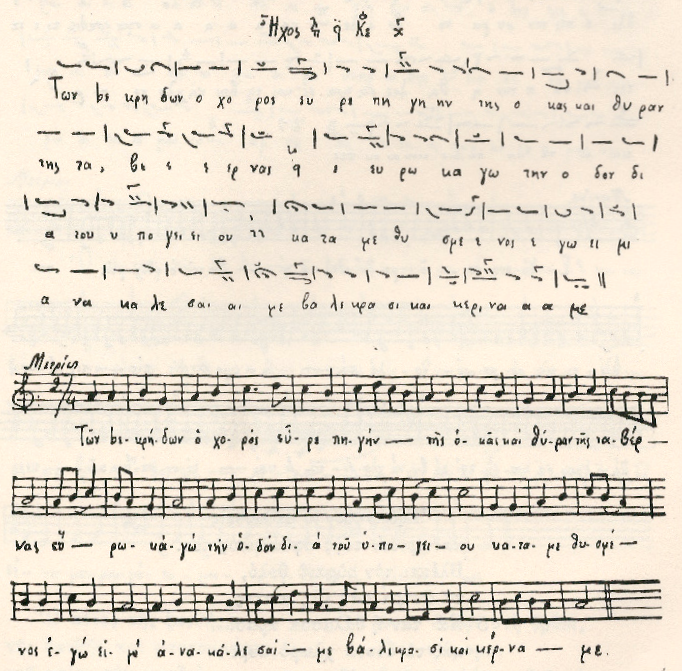 Ἦχος λ π q Κε
Των βε κρη δων ο χο ρος ευ ρε πη γη ην της ο κας και θυ ραν
της τα, βε ε ε ερ νας q ε ευ ρω κα γω την ο δον δι
α του υ πο γει ει ου κα τα με θυ σμε ε νος ε γω ει μι
α να κα λε σαι αι με βα λε κρα σι και κερ να α α με
Μετρίως
2/4
Τῶν βε-κρή-δων ὁ χο-ρός εὗ-ρε πη-γήν — τῆς ὀ-κᾶς καί θύ-ραν τῆς τα-βέρ —
νας εὕ — ρω- κἀ-γώ τήν ὁ-δόν δι-ά τοῦ ὑ-πο-γεί — ου κα-τα-με θυ-σμέ —
νος ἐ-γώ εἰ-μί ἀ-να-κά-λε σαί — με βά-λε κρα-σί καί κέρ-να — με.